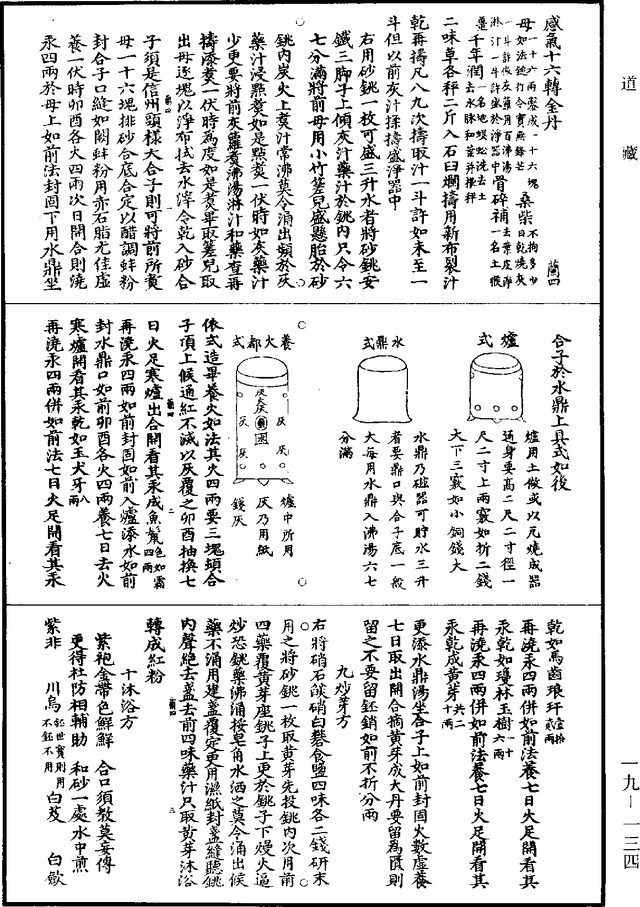 道藏
感氣十六轉金丹
蘭四
母一十六兩鏊成一十六塊
如法鎚打令實無鋒芒
桑柴不拘多少日乾燒灰
一斗許依左蘿用百沸湯
淋汁一斗許盛於淨器中
骨碎補去葉皮淨一名土猴
薑
千年潤去水脉和葉并根秤一名地蜈蚣洗去土
二味草各秤二斤入石臼爛擣用新布裂汁
乾再擣凡八九次擣取汁一斗許如未至一
斗但以前灰汁揉擣盛淨器中
右用砂銚一枚可盛三升水者將砂銚安
鐵三脚子上傾灰汁藥汁於銚內只令六
七分滿將前母用小竹䈰兒盛懸胎於砂
銚內炭火上煑汁常沸莫令涌出頻於灰
藥汁浸㸃煑如是㸃煑一伏時如灰藥汁
少更要將前灰蘿煑沸湯淋汁和藥查再
擣漆煑一伏時為度如是煑畢取䈰兒取
出母逐塊以淨布拭去水滓令乾入砂合
子須是信州頭樣大合子則可將前所煑
母一十六塊排砂合底合定以醋調蚌粉
封合子口縫如闕蚌粉用赤石脂尤佳虛
養一伏時卯酉各火四兩次日開合則澆
汞四兩於母上如前法封固下用水鼎坐
合子於水鼎上具式如後
爐式
爐用土做或以瓦燒成器
通身要高二尺二寸徑一
尺二寸上兩竅如折二錢
大下三竅如小銅錢大
水鼎式
水鼎乃磁器可貯水三升
者要鼎口與合子底一般
大每用水鼎入沸湯六七
分滿
養火都式
灰
爐中所用
灰乃用紙
錢灰
依式造畢養火如法其火四兩要三塊頭合
子頂上候通紅不減以灰覆之卯酉抽換七
日火足寒爐出合開看其汞成魚鬣色如霜四兩
再澆汞四兩如前封固如前入爐添水如前
封水鼎口如前卯酉各火四兩養七日去火
寒爐開看其汞乾如玉犬牙八兩
再澆汞四兩併如前法七日火足開看其汞
乾如馬齒琅玕壹拾貳兩
再澆汞四兩併如前法養七日火足開看其
汞乾如瓊林玉樹一十六兩
再澆汞四兩併如前法養七日火足開看其
汞乾成黃芽共二十兩
更添水鼎湯坐合子上如前封固火數虛養
七日取出開合摘黃芽成大丹要留為匱則
留之不要留鉟銷如前不折分兩
九炒芽方
右將硝石䃃硝白礬食鹽四味各二錢研末
用之將砂銚一枚取黃芽先投銚內次用前
四藥覆黃芽座銚子上更於銚子下熳火逼
炒恐銚藥沸涌㨪皂角水洒之莫令涌出候
藥不涌用建盞覆定更用濕紙封盞縫聽銚
內聲絕去盞去前四味藥汁只取黃芽沐浴
轉成紅粉
十沐浴方
紫袍金帶色鮮鮮　合口須教莫妄傳
更得杜防相輔助　和砂一處水中煎
紫非　川烏鉟世寶則用不鉟不用　白芨　白歛
一九－一三四